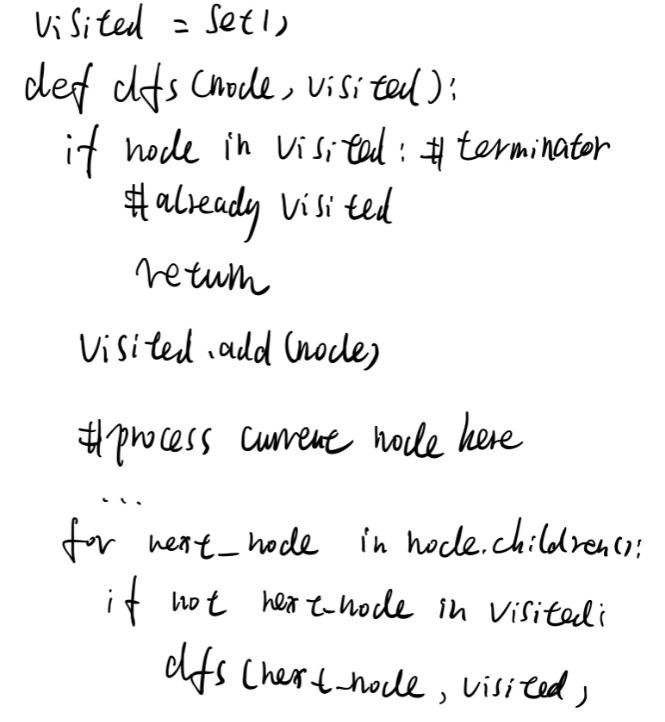 visited = set()
def dfs(node, visited):
if node in visited: # terminator
# already visited
return
visited.add(node)
# process current node here
...
for next_node in node.children():
if not next_node in visited:
dfs(next_node, visited)